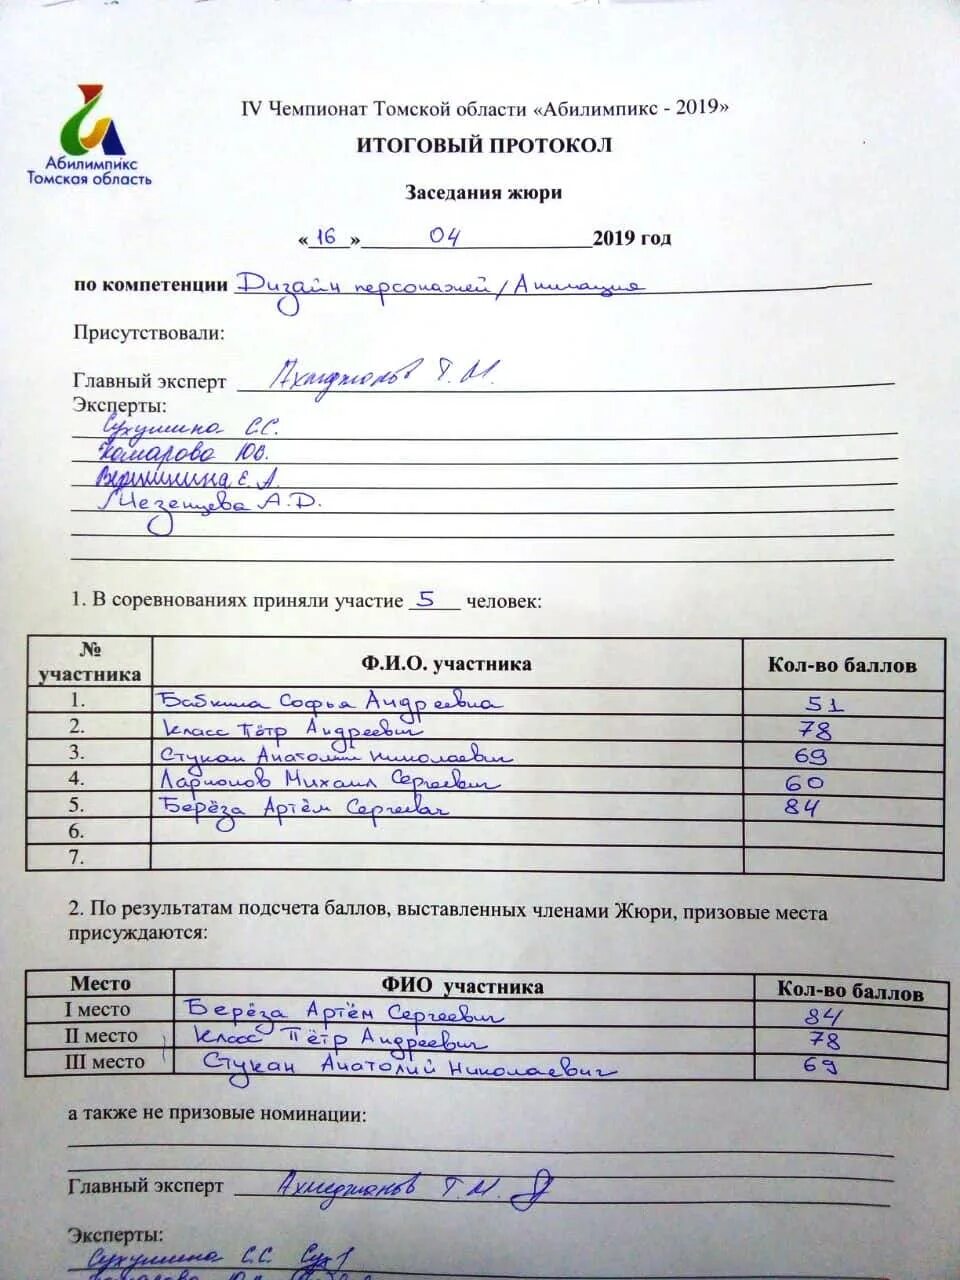 IV Чемпионат Томской области «Абилимпикс - 2019»
ИТОГОВЫЙ ПРОТОКОЛ
Абилимпикс
Томская область
Заседания жюри
«16» 04 2019 год
по компетенции Дизайн персонажей/Анимация
Присутствовали:
Главный эксперт Ахмеджанов Т.М.
Эксперты:
Сухушина С.С.
Комарова Ю.
Вершинина Е.А.
Мезенцева А.D.
1. В соревнованиях приняли участие 5 человек:
№ участника Ф.И.О. участника Кол-во баллов
1. Бабкина Софья Андреевна 51
2. Класс Пётр Андреевич 78
3. Стукан Анатолий Николаевич 69
4. Ларионов Михаил Сергеевич 60
5. Берёза Артём Сергеевич 84
6.
7.
2. По результатам подсчета баллов, выставленных членами Жюри, призовые места
присуждаются:
Место ФИО участника Кол-во баллов
I место Берёза Артём Сергеевич 84
II место Класс Пётр Андреевич 78
III место Стукан Анатолий Николаевич 69
а также не призовые номинации:
Главный эксперт Ахмеджанов Т.М.
Эксперты:
Сухушина С.С.